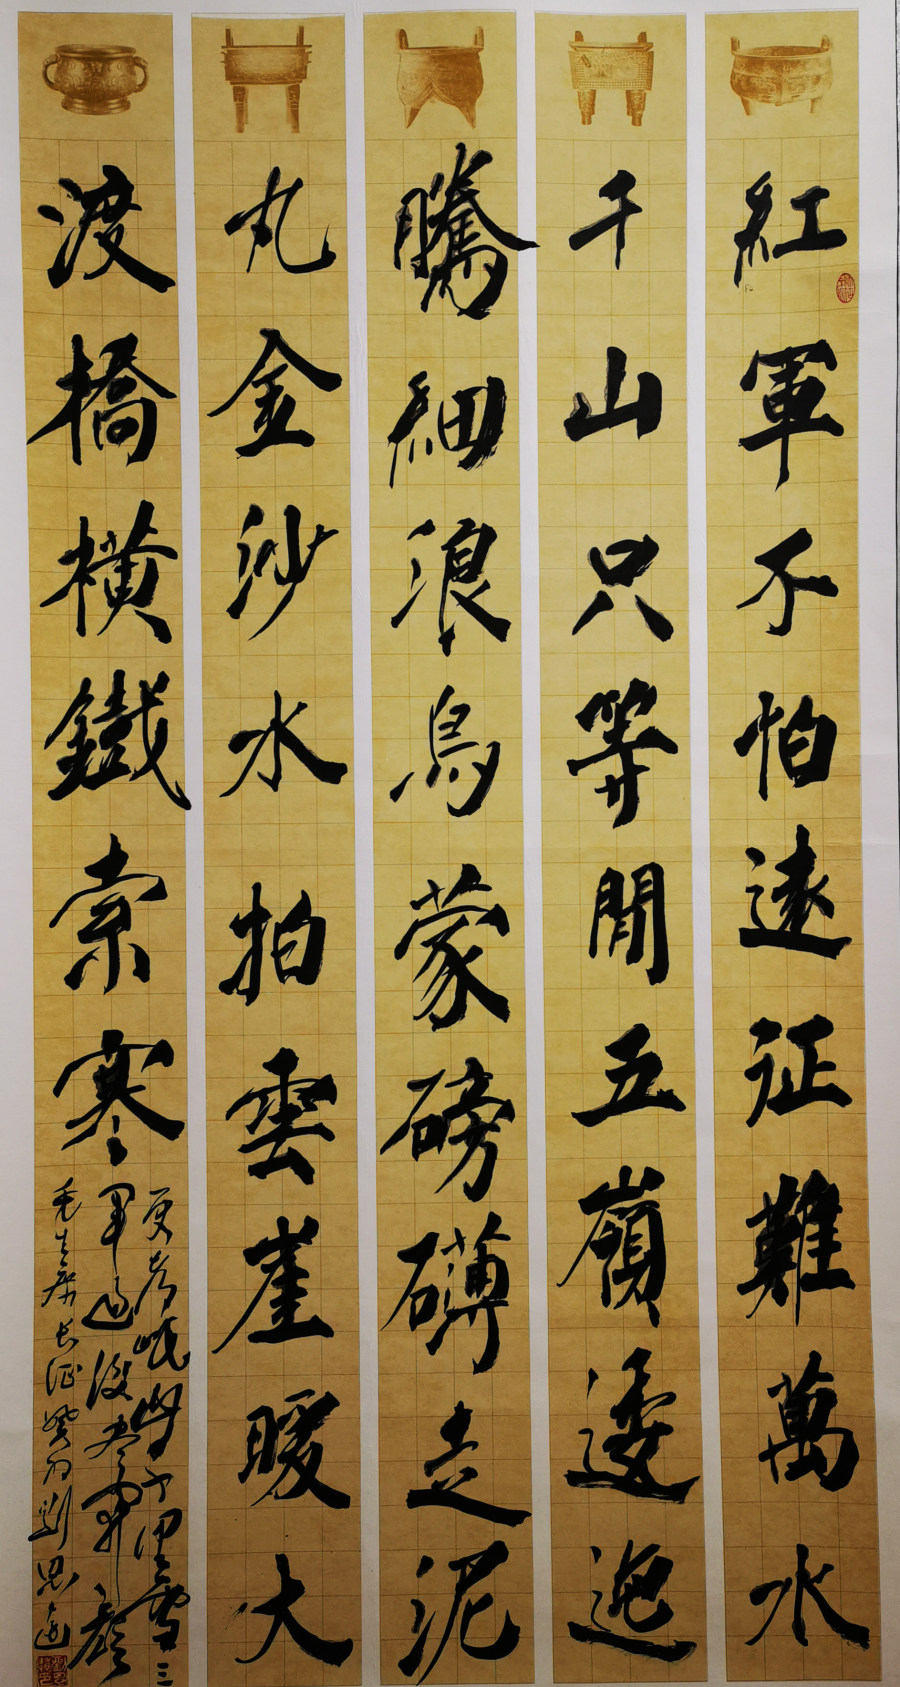 紅軍不怕遠征難萬水
千山只等閒五嶺逶迤
騰細浪烏蒙磅礴走泥
丸金沙水拍雲崖暖大
渡橋橫鐵索寒
更喜岷山千里雪三
軍過後盡開顏
毛主席长征